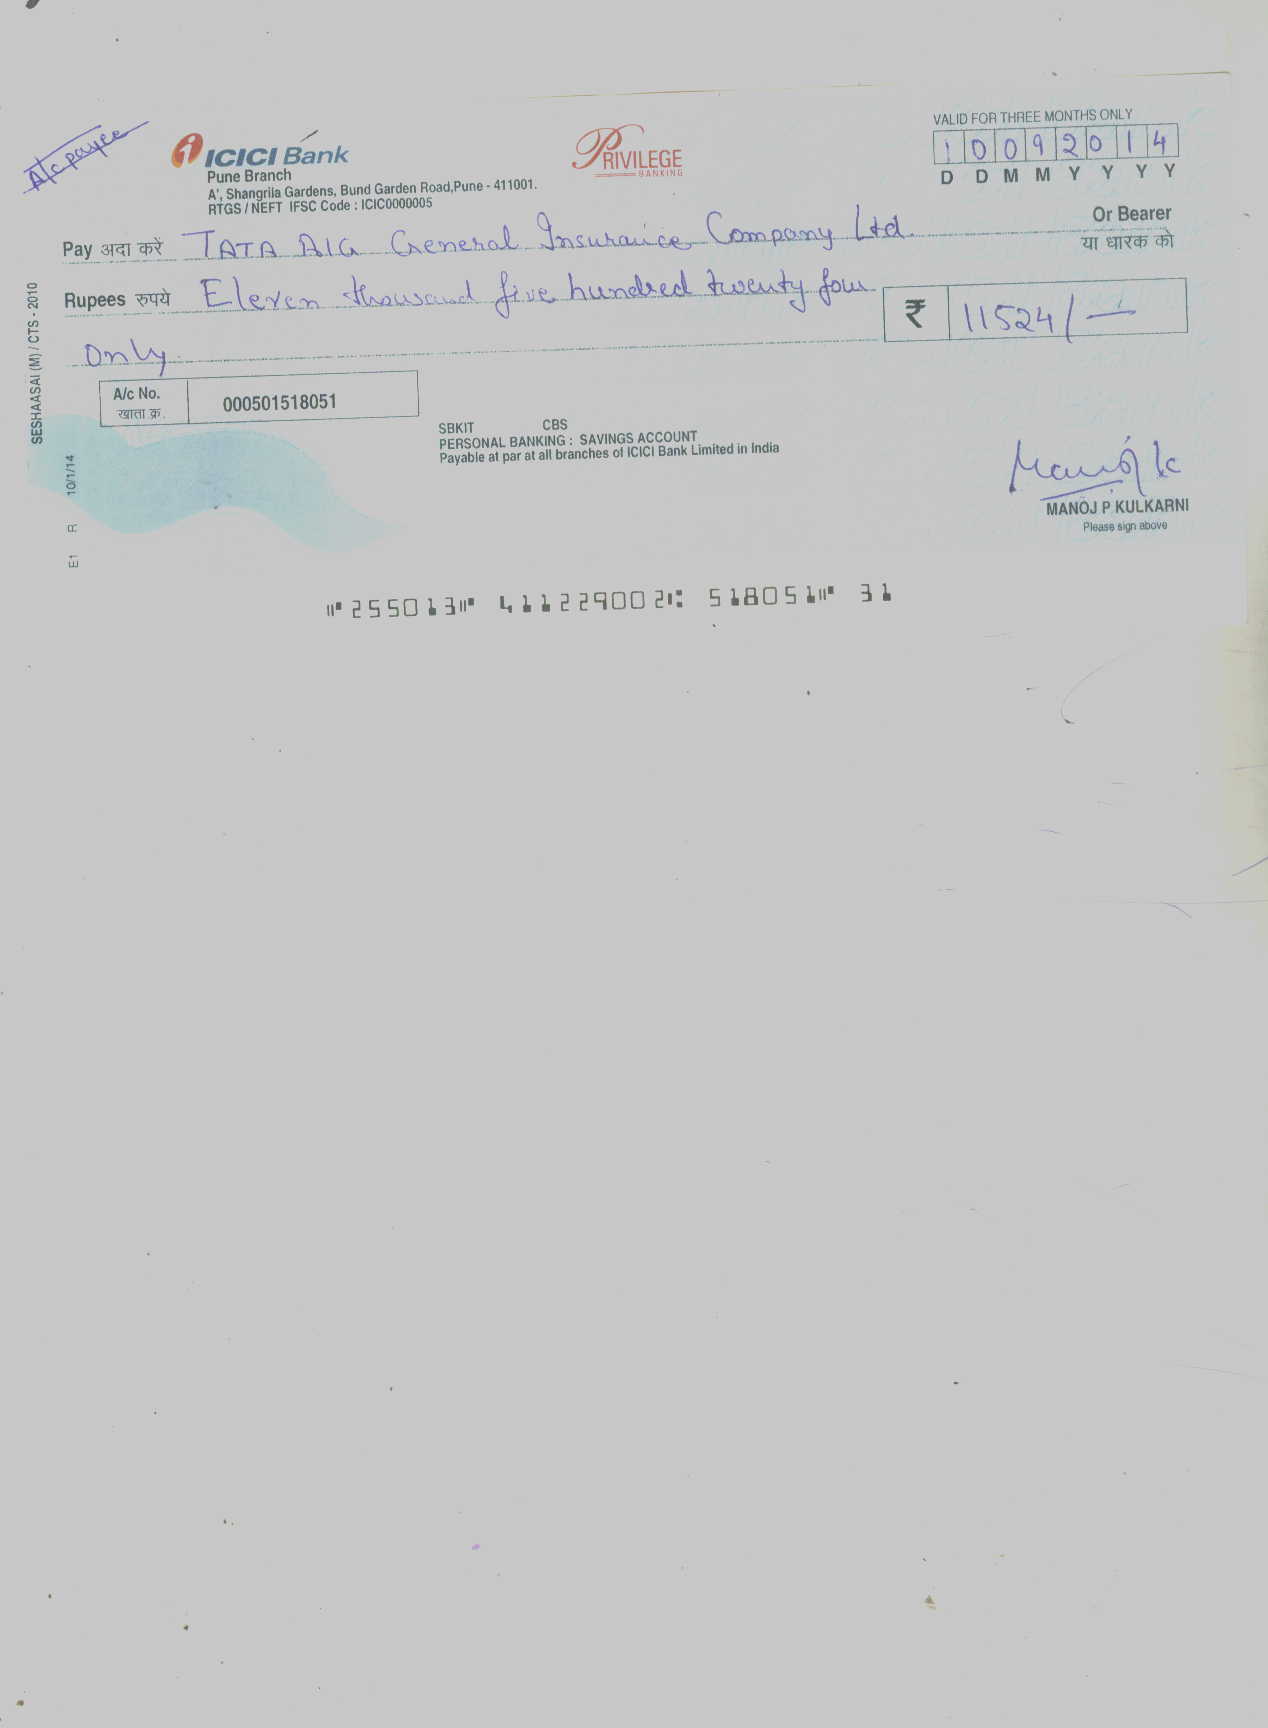 A/c payee
ICICI Bank
Pune Branch
A', Shangrila Gardens, Bund Garden Road,Pune - 411001.
RTGS / NEFT IFSC Code : ICIC0000005
PRIVILEGE
BANKING
VALID FOR THREE MONTHS ONLY
10092014
D D M M Y Y Y Y
Pay अदा करें TATA AIG General Insurance Company Ltd.
Or Bearer
या धारक को
Rupees रुपये Eleven thousand five hundred twenty four
only
₹ 11524/-
A/c No. 000501518051
खाता क्र.
SBKIT CBS
PERSONAL BANKING : SAVINGS ACCOUNT
Payable at par at all branches of ICICI Bank Limited in India
Manoj K
MANOJ P KULKARNI
Please sign above
SESHAASAI (M) / CTS - 2010
E1 R 10/1/14
⑈255013⑈ 411229002⑆ 518051⑈ 31